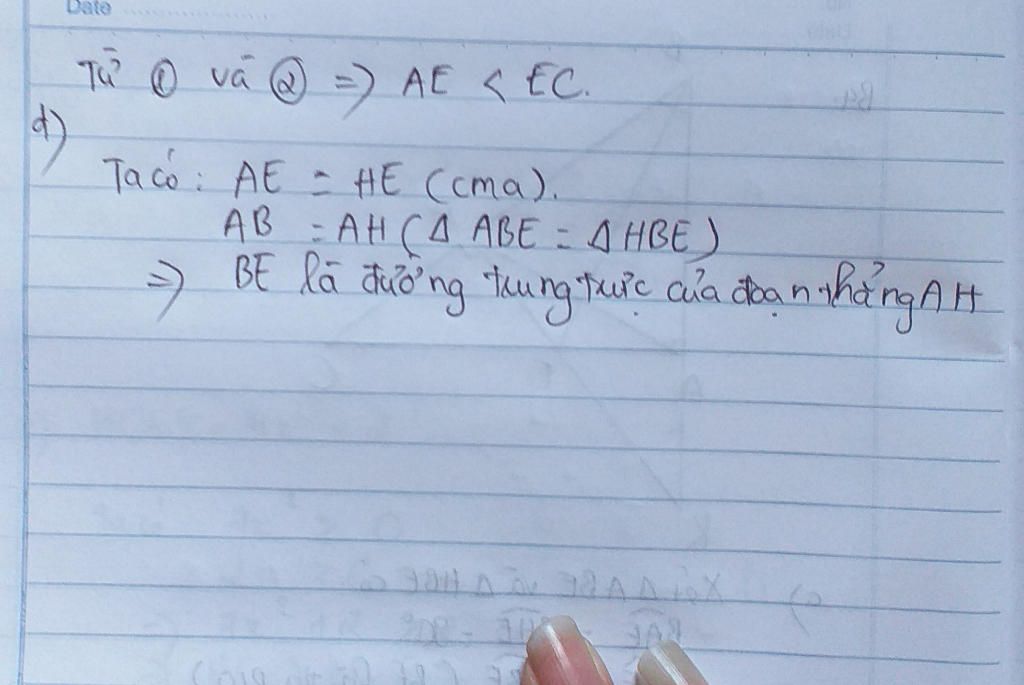 Date
Từ ① và ② => AE < EC.
d)
Ta có : AE = HE (cma).
AB = AH (Δ ABE = Δ HBE)
=> BE là đường trung trực của đoạn thẳng AH
c) Xét Δ ABE và Δ HBE có